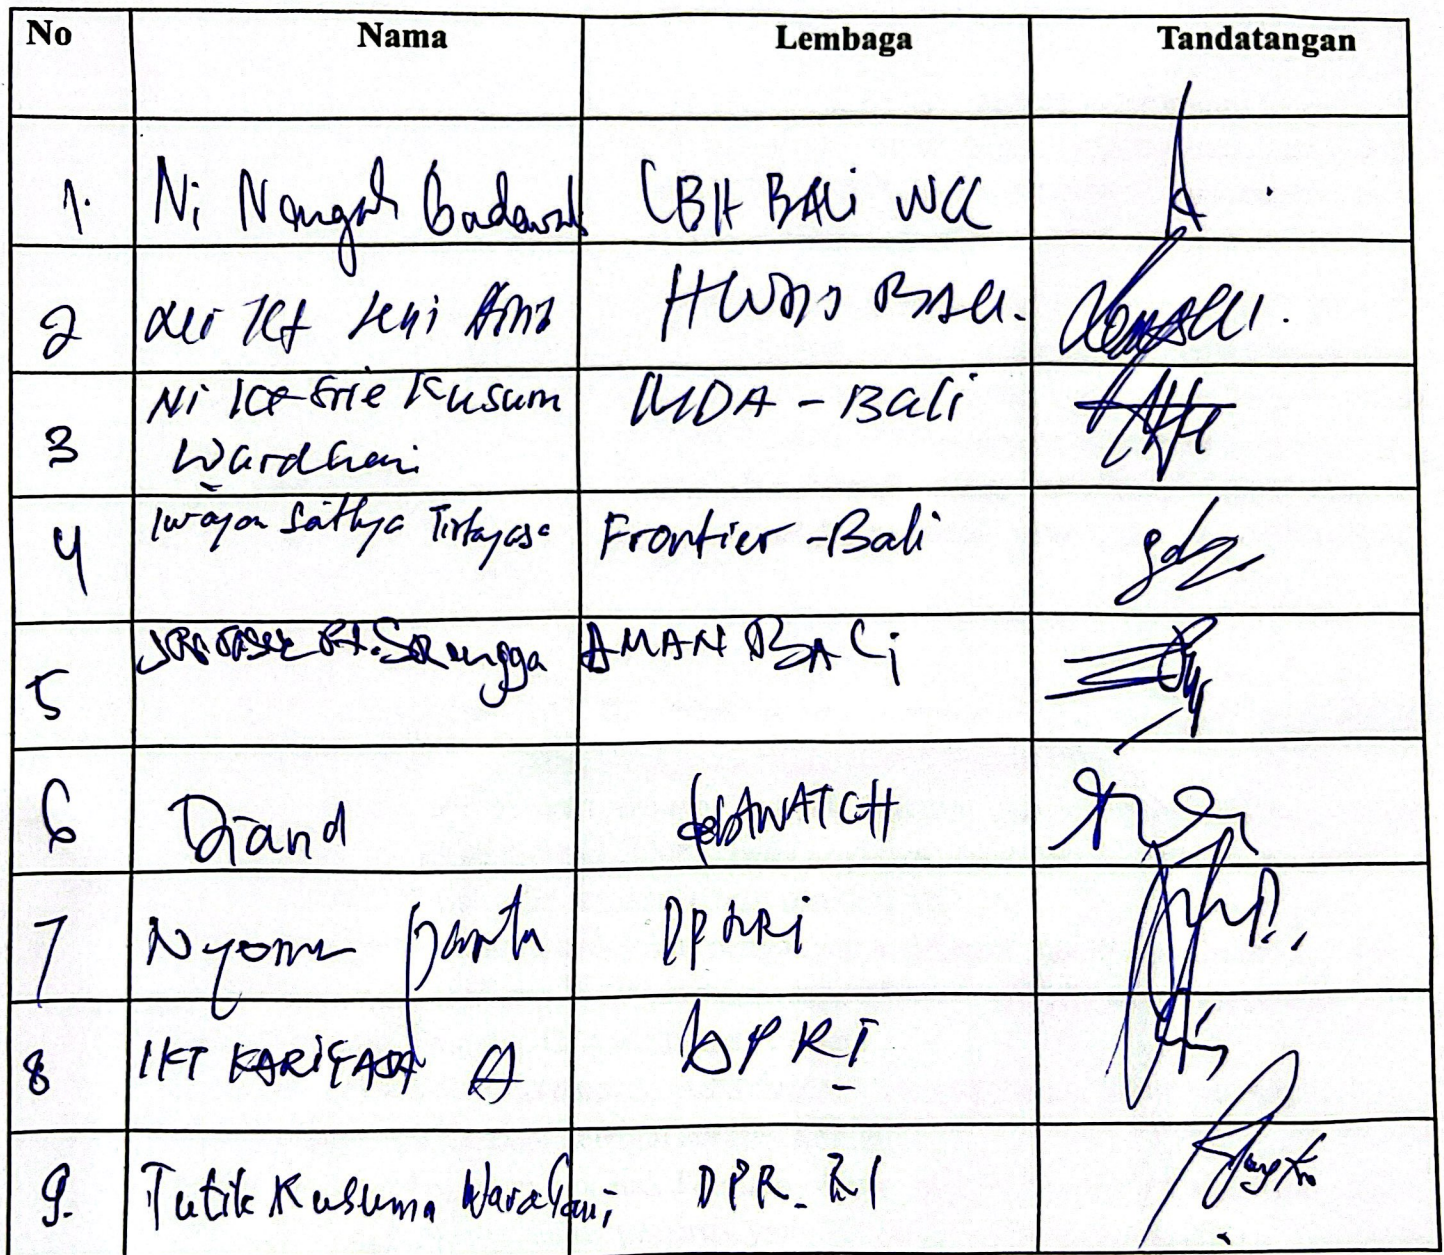 No Nama Lembaga Tandatangan
1. Ni Nengah LBH BALi WCC
2 Ni Kt Leni HWDI BALI.
3 Ni Kt Srie Kusum MDA - Bali
Wardhani
4 I wayan Sathya Tirtayasa Frontier - Bali
5 Serongga AMAN BALi
6 Diand WATCH
7 Nyoman parta DPR Ri
8 IKT KARIYASA A DPRI
9. Tutik Kusuma Wardhani DPR. RI